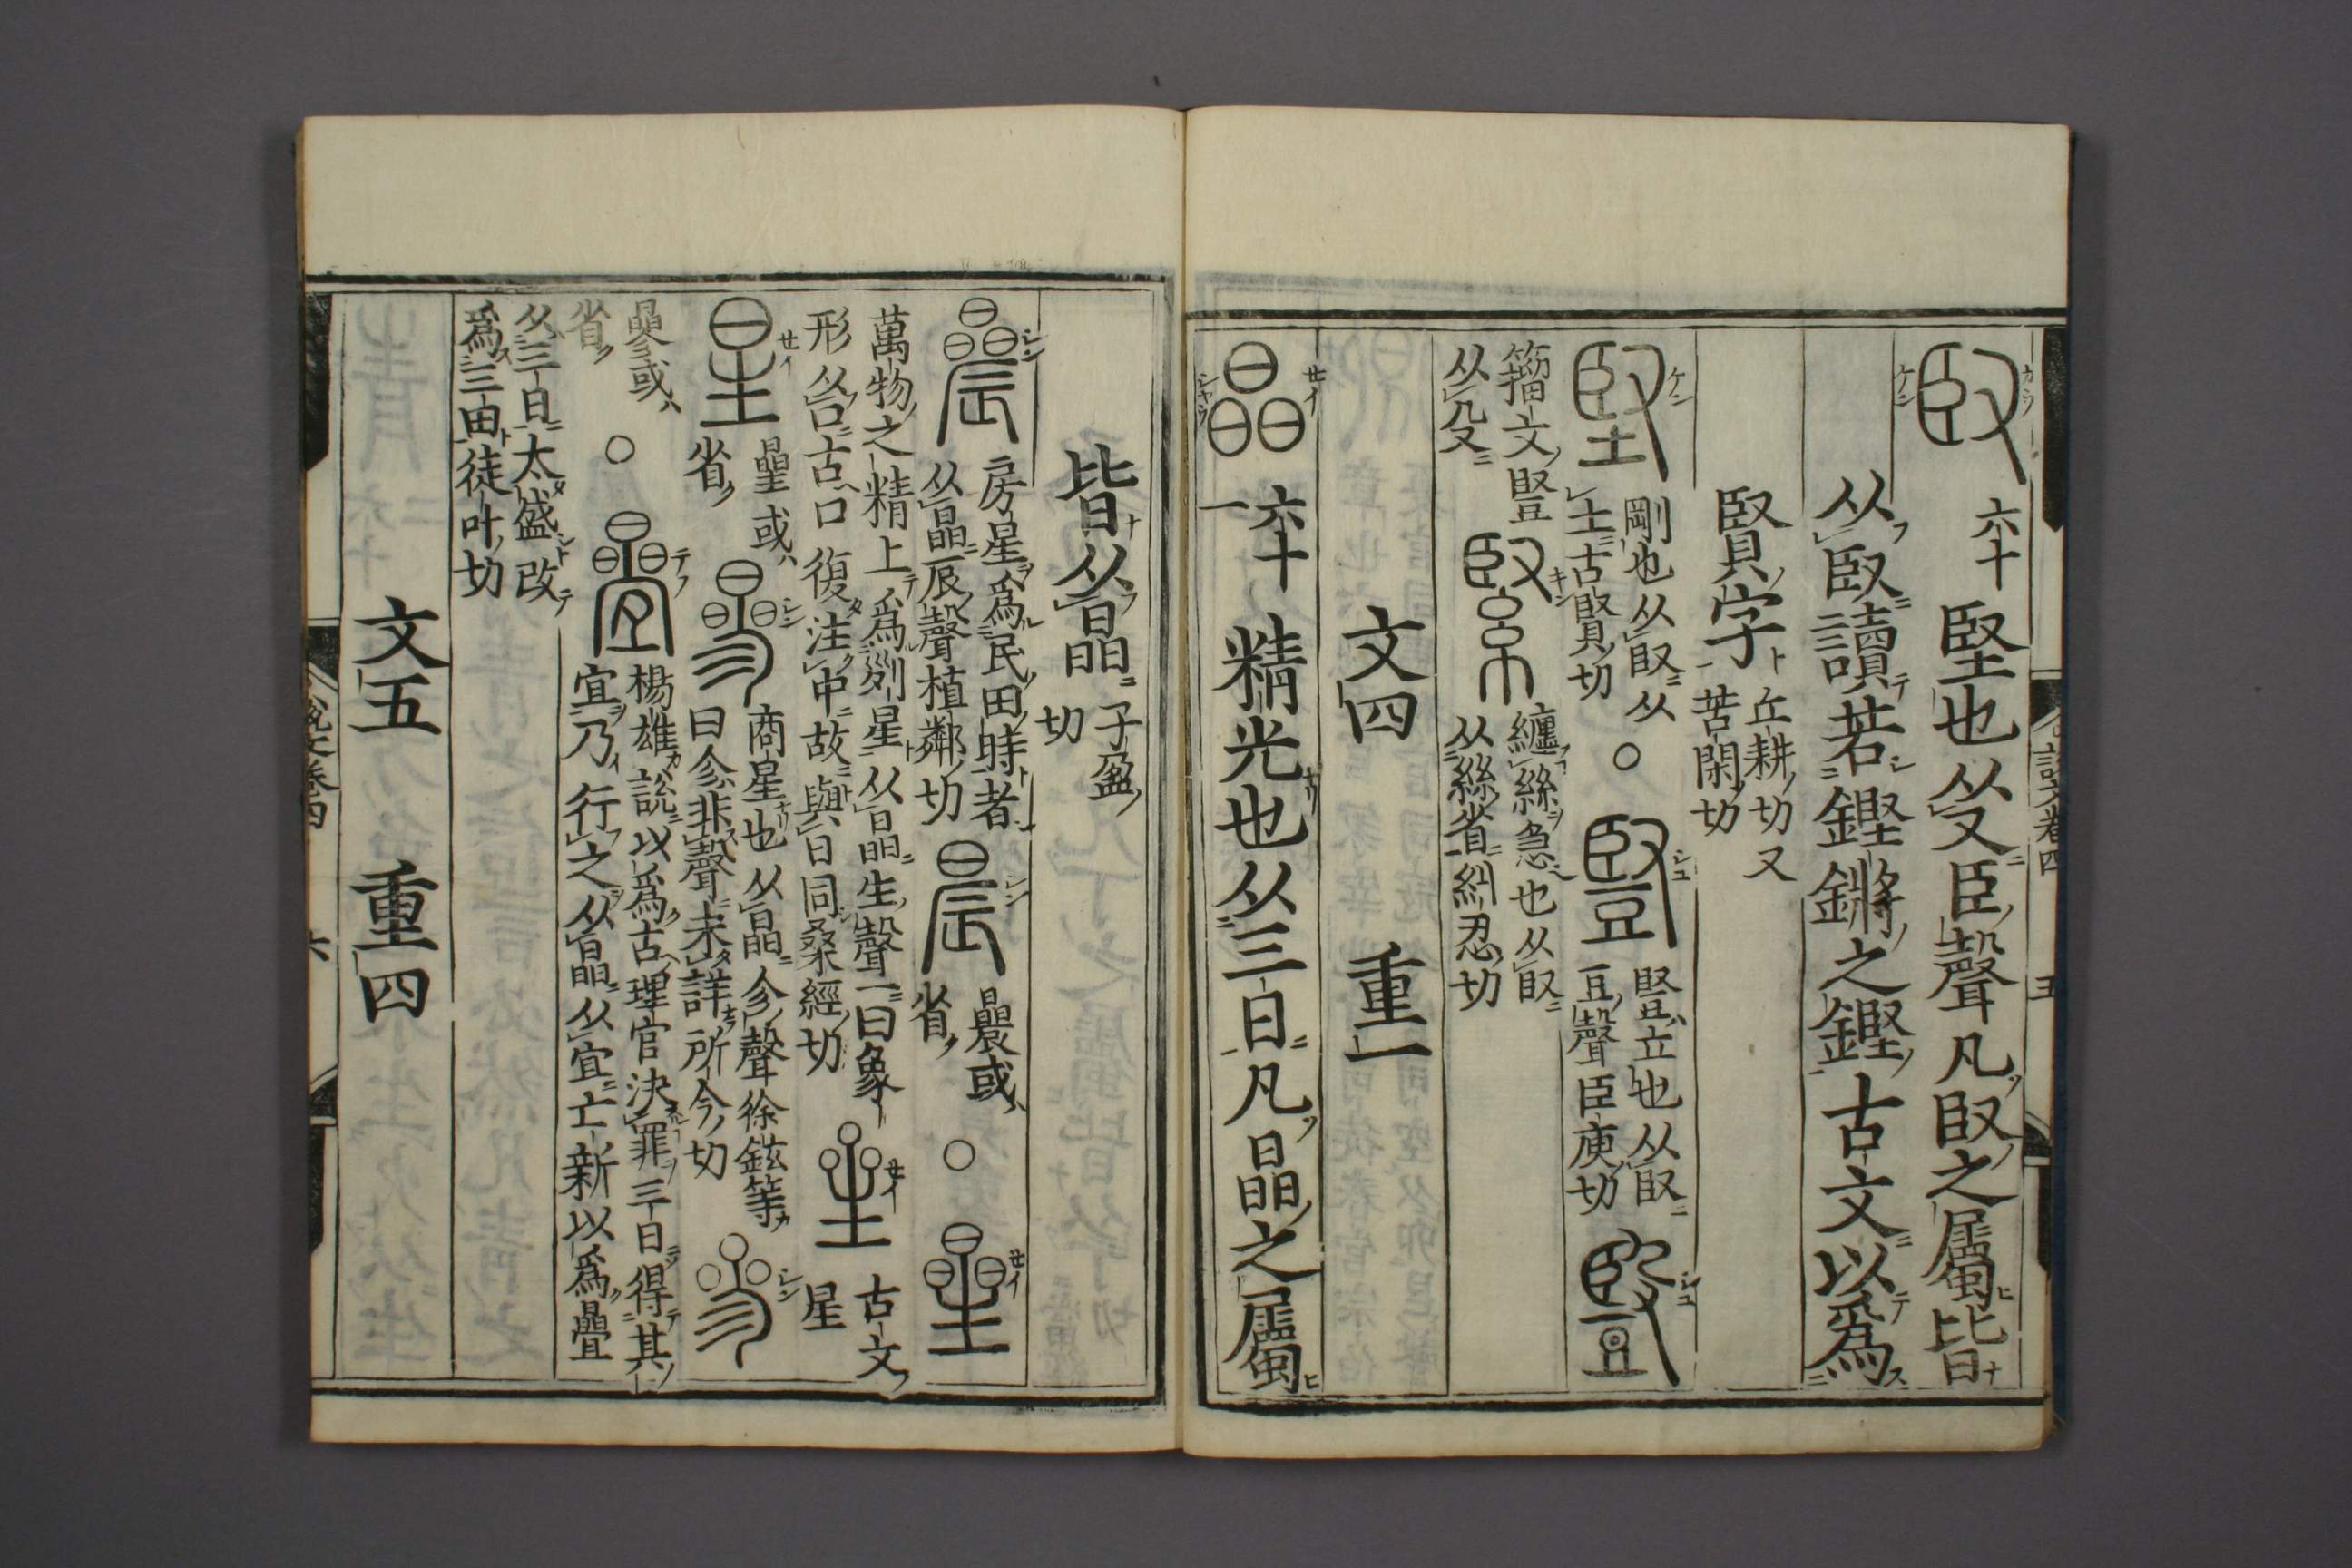 臤 六十 堅也从又臣聲凡臤之屬皆
从臤讀若鏗鏘之鏗古文以爲
賢字 丘耕切又
苦閑切
堅 剛也从臤从
土古賢切
○
豎 豎立也从臤
豆聲臣庾切
豎
籀文豎
从殳
緊 纏絲急也从臤
从絲省糾忍切
文四 重一
晶 六十一 精光也从三日凡晶之屬
說文卷四 五
皆从晶 子盈
切
曟 房星爲民田時者
从晶辰聲植鄰切
晨 曟或
省
○
曐
萬物之精上爲列星从晶生聲一曰象
形从口古口復注中故與日同桑經切
曐 古文
星
星 曐或
省
曑 商星也从晶㐱聲徐鉉等
曰㐱非聲未詳所今切
曑
曑或
省
○
疊 楊雄說以爲古理官決罪三日得其
宜乃行之从晶从宜亡新以爲疊
从三日太盛改
爲三田徒叶切
文五 重四
說文卷四 六